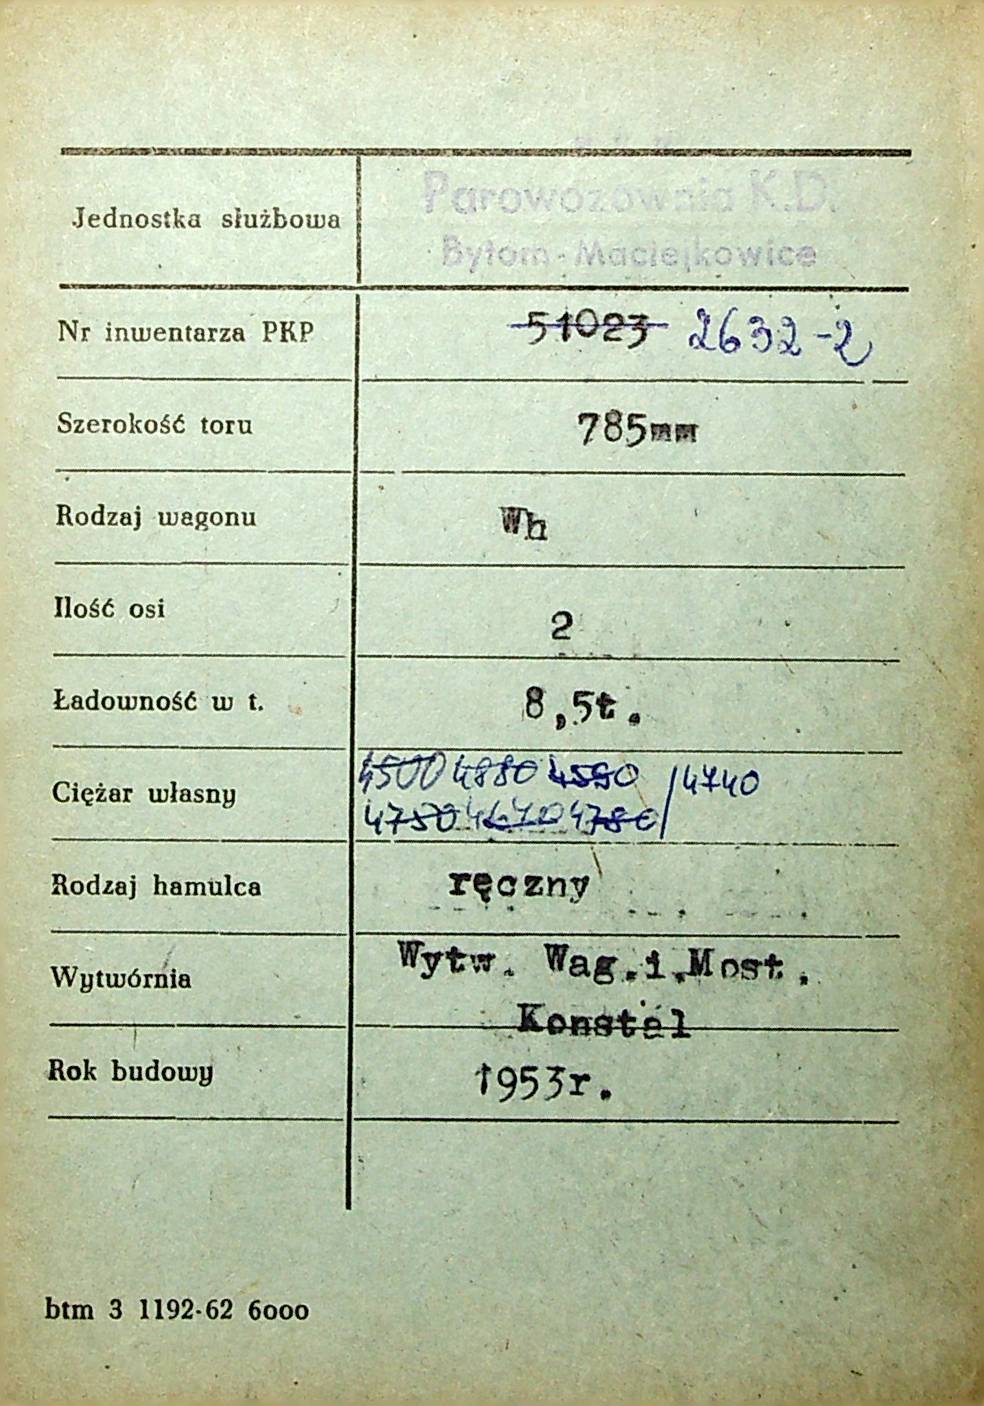 Parowozownia K.D.
Jednostka służbowa
Bytom-Maciejkowice
Nr inwentarza PKP 51023 2632-2
Szerokość toru 785mm
Rodzaj wagonu Wh
Ilość osi 2
Ładowność w t. 8,5t.
4500 4880 4590 /4740
Ciężar własny
4750 4670 4780
Rodzaj hamulca ręczny
Wytw. Wag.i.Most.
Wytwórnia
Konstal
Rok budowy 1953r.
btm 3 1192-62 6000